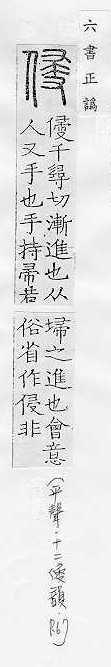 六書正譌
㑴
㑴千尋切漸進也从
人又手也手持帚若
埽之進也會意
俗省作侵非
(平聲.十二㑴韻.P.67)